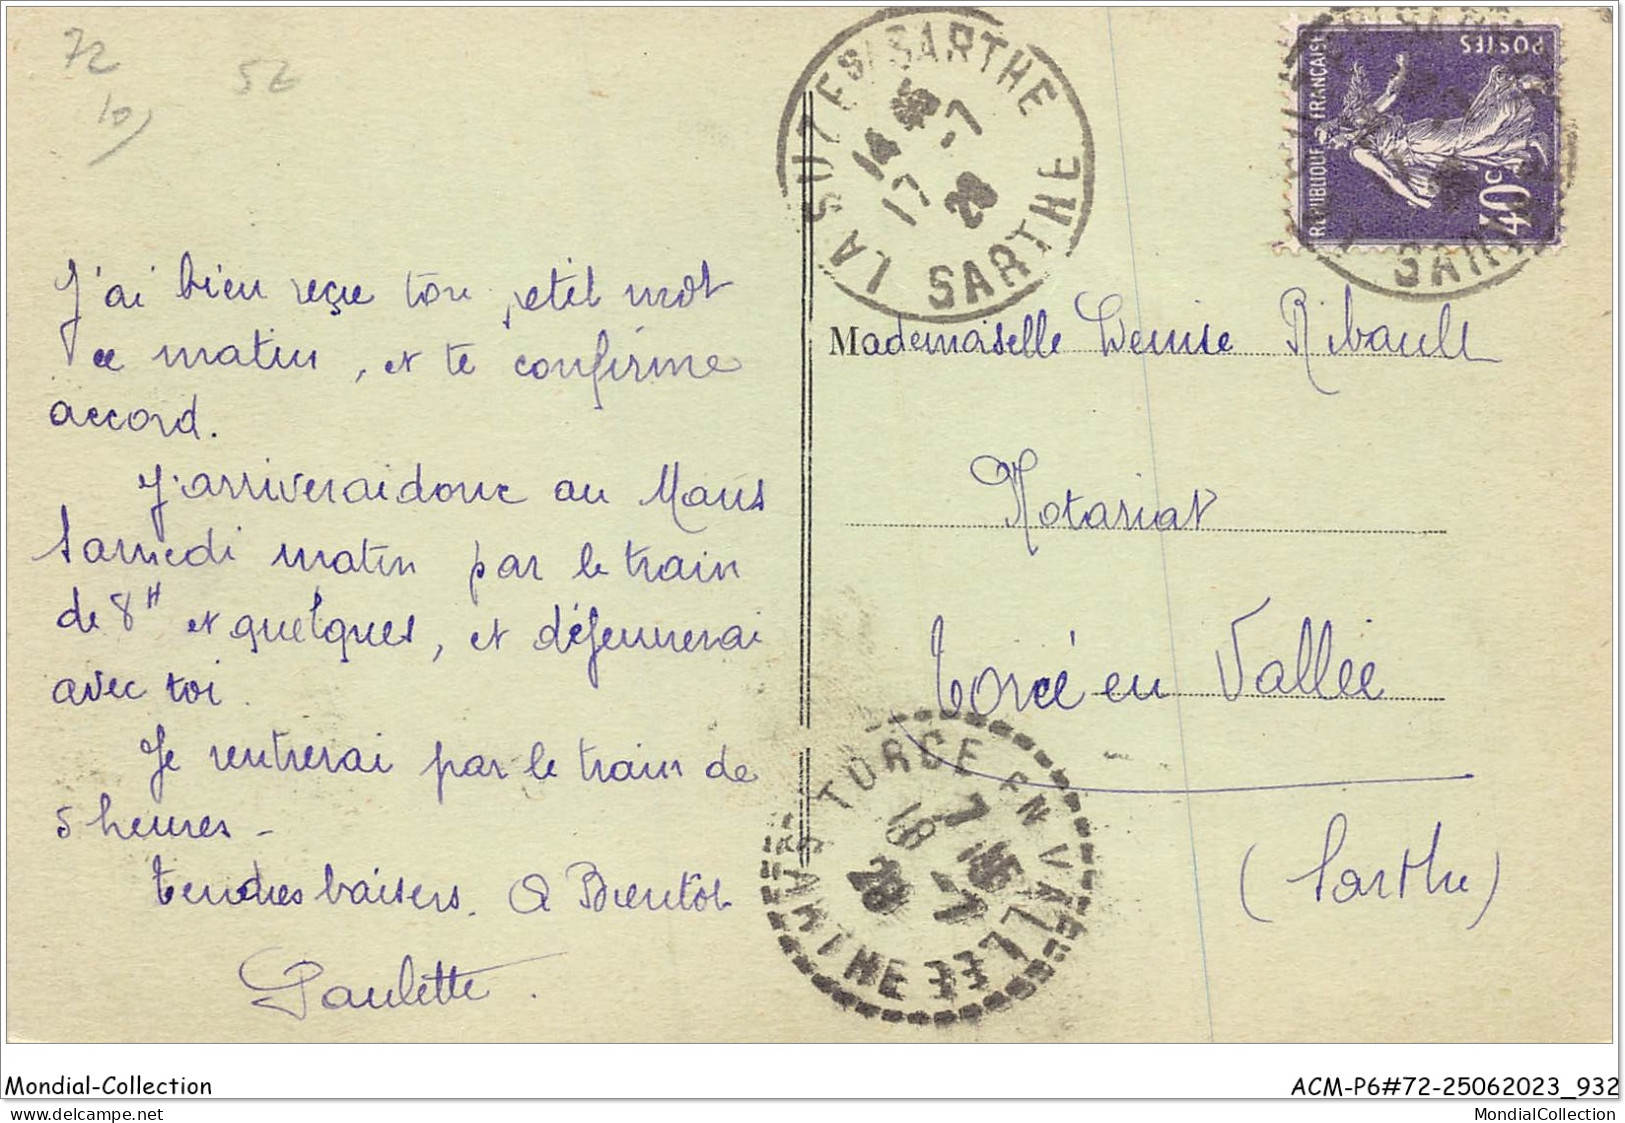 72
10
52
LA SUZE S/SARTHE
14 45
17 -7
28
SARTHE
POSTES
REPUBLIQUE FRANÇAISE
40c
SARTHE
J'ai bien reçue ton petit mot
ce matin, et te confirme
accord.
J'arriverai donc au Mans
Samedi matin par le train
de 8H et quelques, et déjeunerai
avec toi.
Je rentrerai par le train de
5 heures -
Tendres baisers. A Bientôt
Paulette.
Mademoiselle Denise Ribault
Notariat
Torcé en Vallée
(Sarthe)
TORCE EN VALLEE
18 7
28
SARTHE
Mondial-Collection
ACM-P6#72-25062023_932
MondialCollection